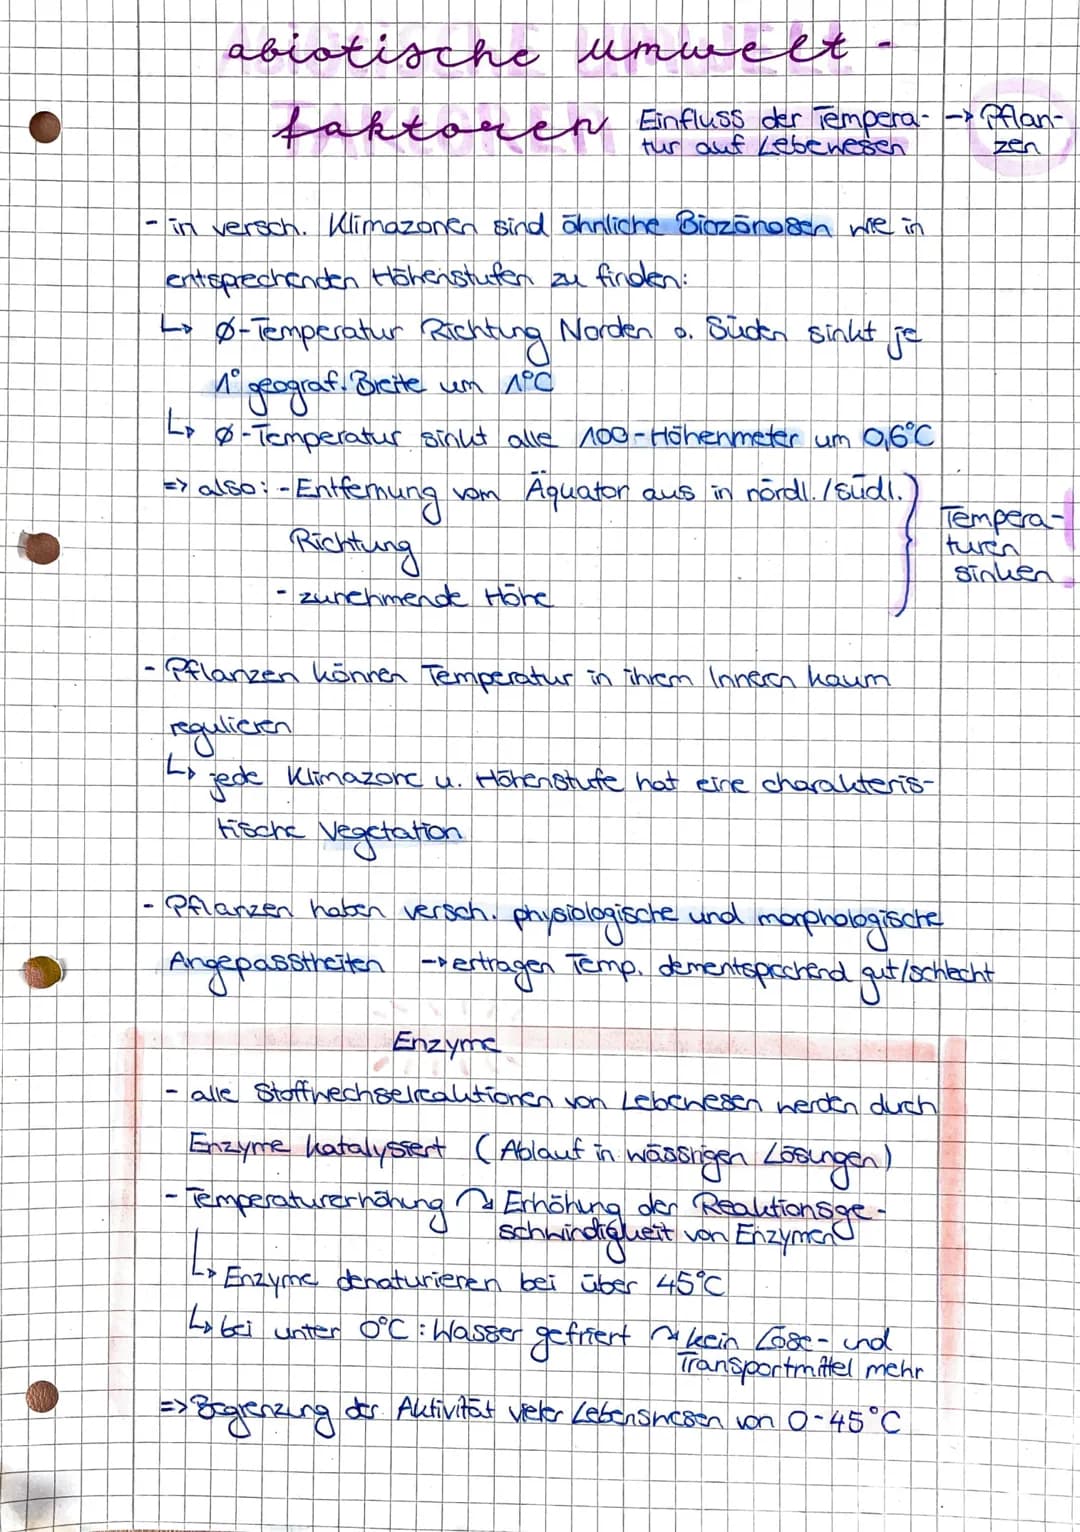 abiotische Umwelt-
faktoren
Einfluss der Tempera- -> Pflan-
tur auf Lebewesen zen
- in versch. Klimazonen sind ähnliche Biozönosen wie in
entsprechenden Höhenstufen zu finden:
↳ Ø-Temperatur Richtung Norden o. Süden sinkt je
1° geograf. Breite um 1°C
↳ Ø-Temperatur sinkt alle 100-Höhenmeter um 0,6°C
=> also: - Entfernung vom Äquator aus in nördl./südl.
Richtung
- zunehmende Höhe
Tempera-
turen
sinken
- Pflanzen können Temperatur in ihrem Innern kaum
regulieren
↳ jede Klimazone u. Höhenstufe hat eine charakteris-
tische Vegetation
- Pflanzen haben versch. physiologische und morphologische
Angepasstheiten -> ertragen Temp. dementsprechend gut/schlecht
Enzyme
- alle Stoffwechselreaktionen von Lebewesen werden durch
Enzyme katalysiert (Ablauf in wässrigen Lösungen)
- Temperaturerhöhung ↷ Erhöhung der Reaktionsge-
schwindigkeit von Enzymen
↳ Enzyme denaturieren bei über 45°C
↳ bei unter 0°C: Wasser gefriert ↷ kein Löse- und
Transportmittel mehr
=> Begrenzung der Aktivität vieler Lebenswesen von 0-45°C